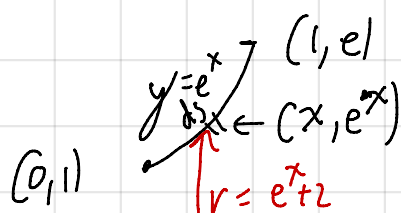 (1, e)
y=e^x
ds ← (x, e^x)
(0,1)
r = e^x+2